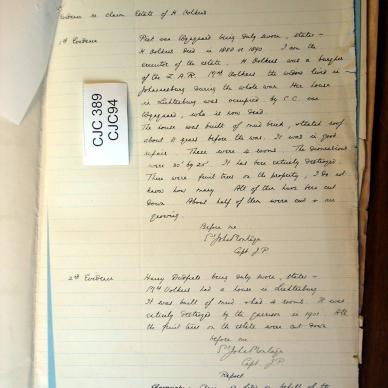 Evidence re claim Estate of H. Volkers
1st Evidence Piet van Wyngaard being duly sworn, states -
H Volkers died in 1889 or 1890. I am the
executor of the estate. H Volkers was a burgher
of the Z.A.R. Mrs Volkers the widow lived in
Johannesburg during the whole war. Her house
in Lichtenburg was occupied by C.C. van
Wyngaard, who is now dead.
The house was built of mud brick, thatched roof
about 11 years before the war. It was in good
repair. There were 2 rooms. The dimensions
were 30' by 25'. It has been entirely destroyed.
There were fruit trees on the property, I do not
know how many. All of them have been cut
down. About half of them were cut & are
growing.
Before me
St John
Capt J.P.
CJC 389
CJC94
2nd Evidence Harry being duly sworn, states -
Mrs Volkers had a house in Lichtenburg
It was built of mud & had 2 rooms. It was
entirely destroyed by the garrison in 1901. All
the fruit trees on the estate were cut down
before me
St John
Capt J.P.
Report